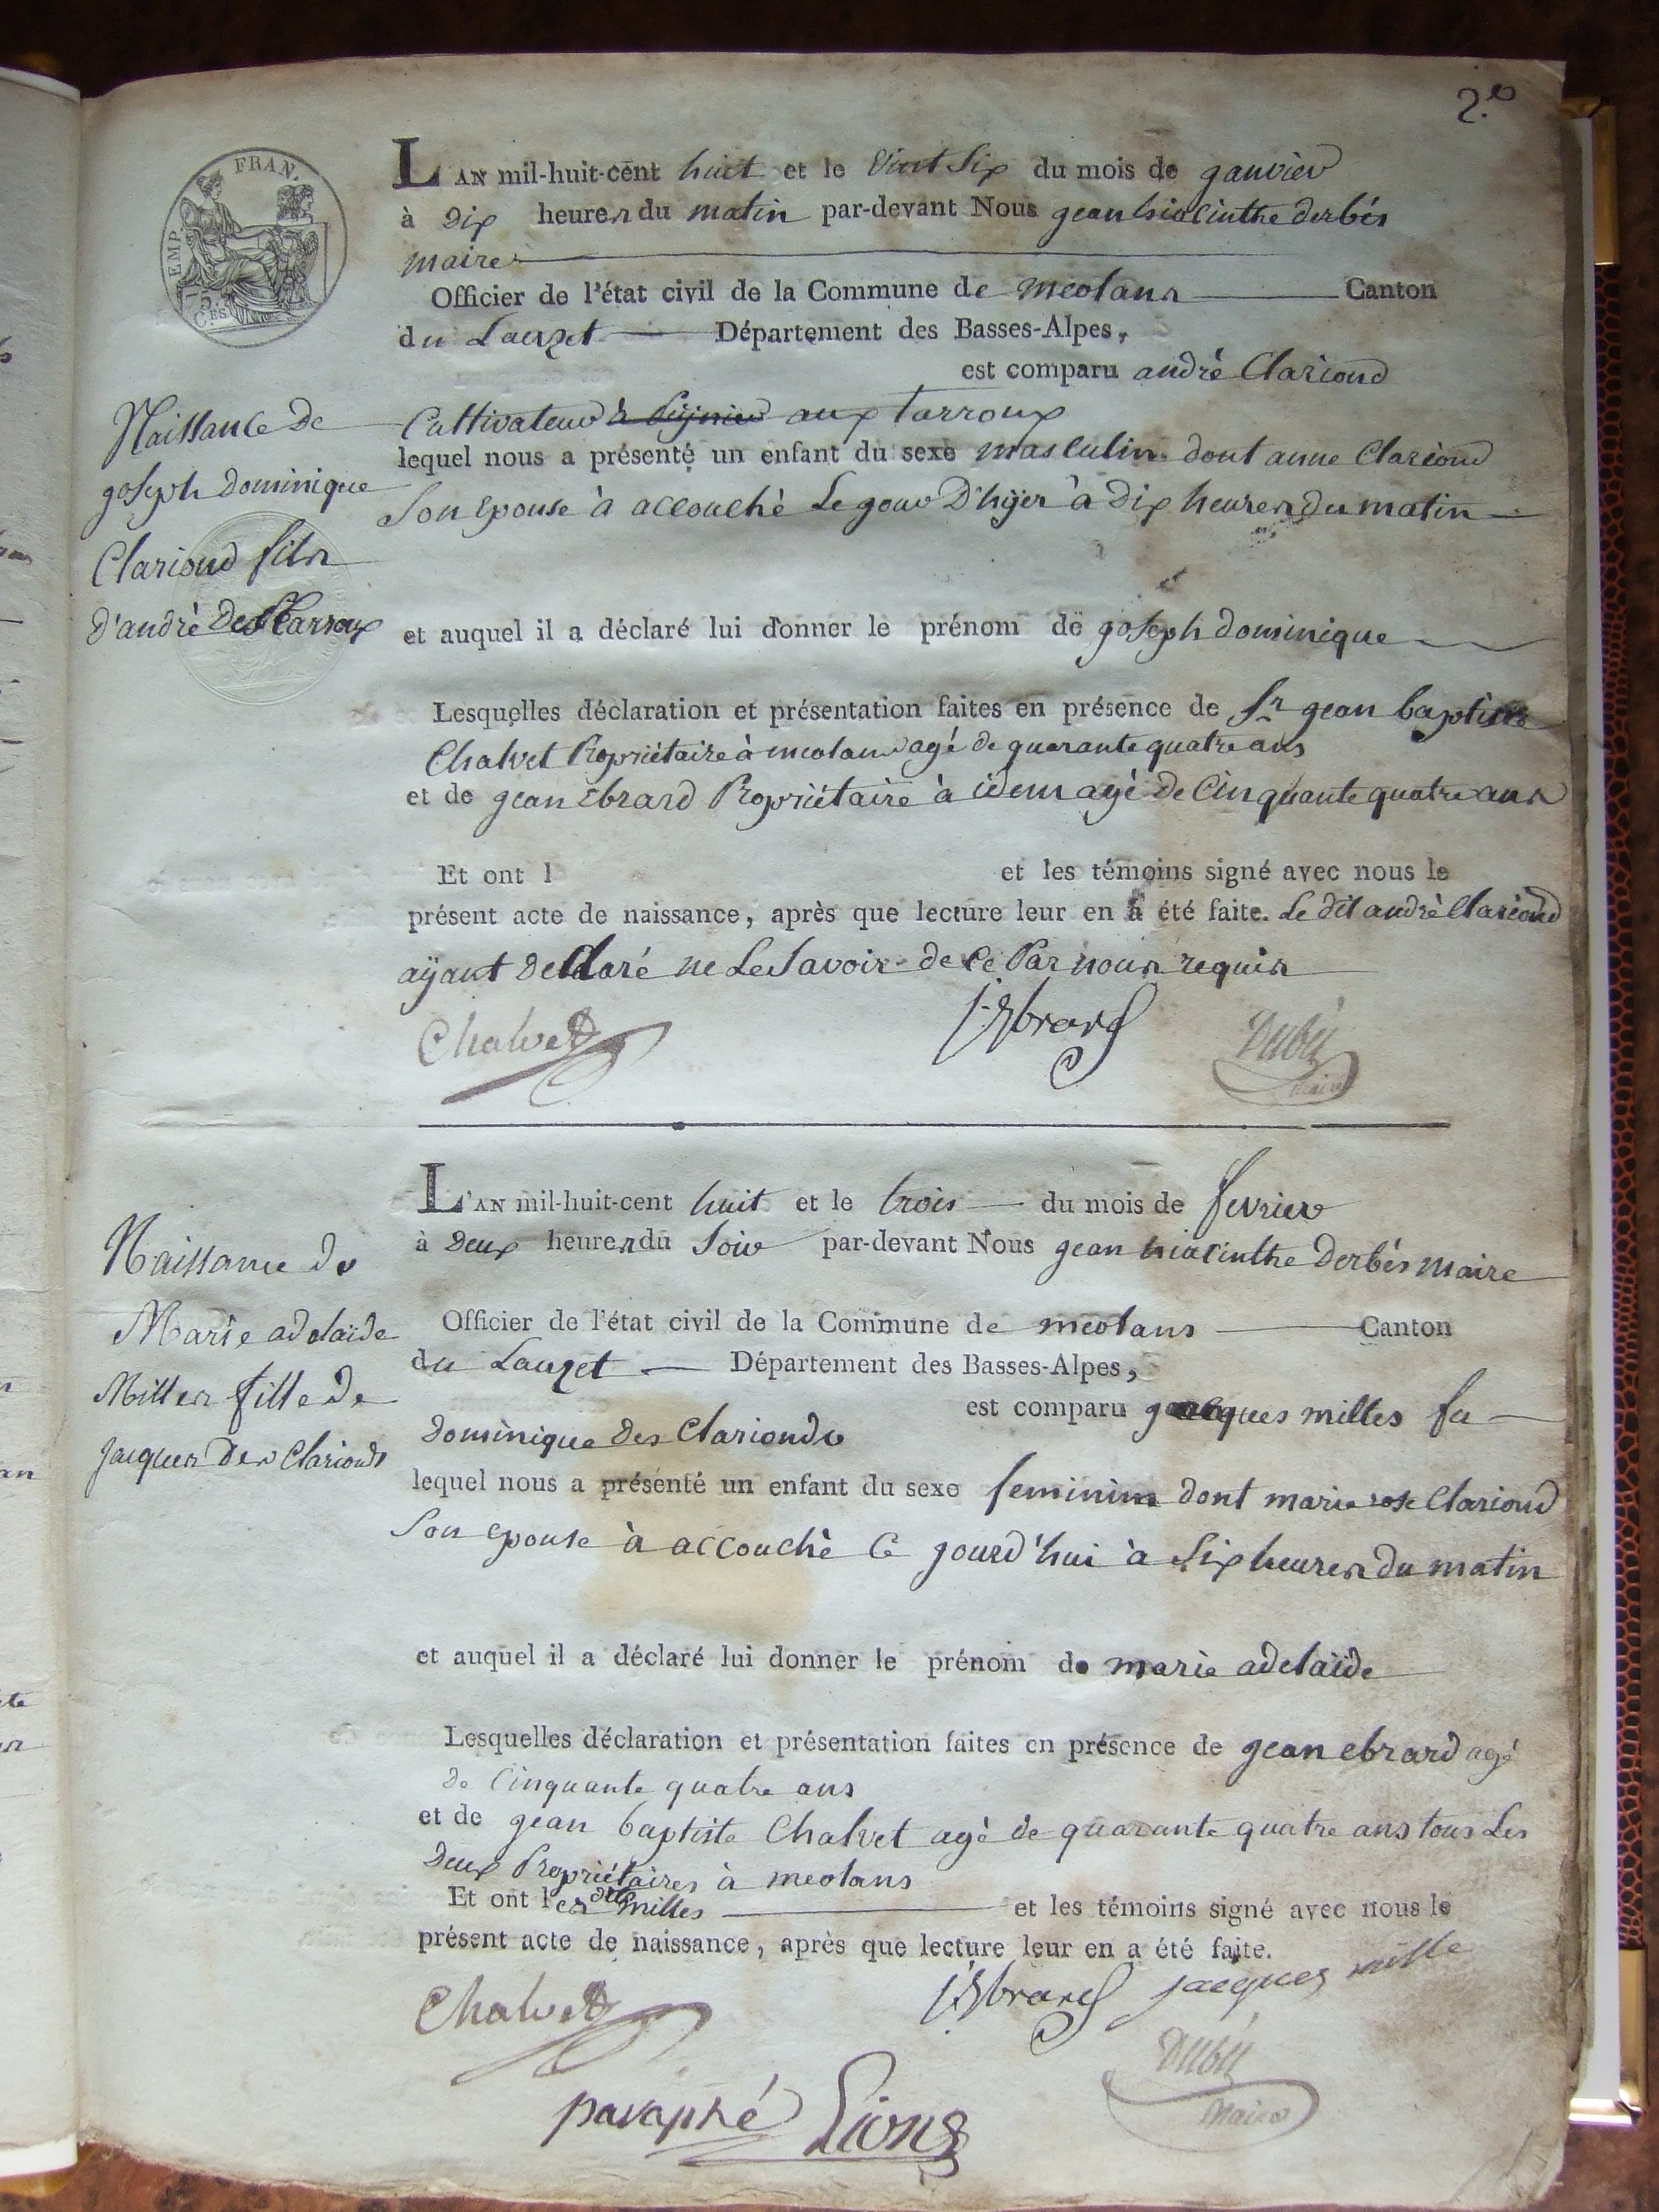 2.e
EMP. FRAN.
75.
C.ES
L'AN mil-huit-cent huit et le vint six du mois de janvier
à dix heures du matin par-devant Nous jean hiacinthe derbés
maire
Officier de l'état civil de la Commune de meolans Canton
du Lauzet Département des Basses-Alpes,
est comparu andré Clariond
Cultivateur à aux tarroux
lequel nous a présenté un enfant du sexe masculin dont anne Clariond
Son epouse à accouché Le jour D'hyer à Dix heures du matin
et auquel il a déclaré lui donner le prénom de joseph dominique
Lesquelles déclaration et présentation faites en présence de Sr jean baptiste
Chalvet Propriétaire à meolans agé de quarante quatre ans
et de jean Ebrard Propriétaire à idem agé de Cinquante quatre ans
Et ont l et les témoins signé avec nous le
présent acte de naissance, après que lecture leur en a été faite. Le dit andré Clariond
aÿant declaré ne Le Savoir de ce Par nous requis
Naissance de
joseph dominique
Clariond fils
d'andré des tarroux
Chalvet
j. Ebrard
Maire
L'AN mil-huit-cent huit et le trois du mois de fevrier
à deux heures du soir par-devant Nous jean hiacinthe Derbés maire
Officier de l'état civil de la Commune de meolans Canton
du Lauzet Département des Basses-Alpes,
est comparu jacques milles fu
dominique des Clarionds
lequel nous a présenté un enfant du sexe feminim dont marie rose Clariond
Son epouse à accouché Ce jourd'hui à Six heures du matin
et auquel il a déclaré lui donner le prénom de marie adelaïde
Lesquelles déclaration et présentation faites en présence de jean ebrard agé
de Cinquante quatre ans
et de jean baptiste Chalvet agé de quarante quatre ans tous Les
Deux Propriétaires à meolans
Et ont les dits milles et les témoins signé avec nous le
présent acte de naissance, après que lecture leur en a été faite.
Naissance de
Marie adelaïde
Milles fille de
jacques Des Clarionds
Chalvet
j. Ebrard
jacques mille
Maire
paraphé Lions